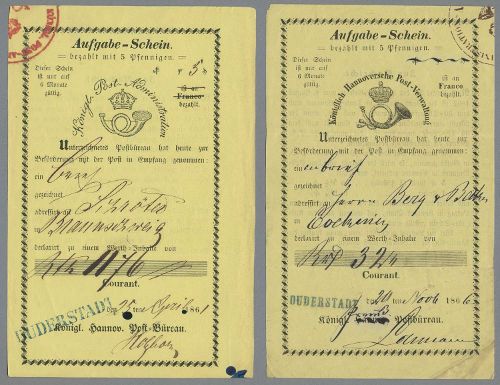 Aufgabe-Schein.
bezahlt mit 5 Pfennigen.
Dieser Schein
ist nur auf
6 Monate
gültig.
№ 5
ist an
Franco
bezahlt.
Königl. Post-Administration
Unterzeichnetes Postbüreau hat heute zur
Beförderung mit der Post in Empfang genommen:
ein Brief
gezeichnet
adressirt an Schröter
Braunschweig
declarirt zu einem Werth-Inhalte von
1176
Courant.
DUDERSTADT den 25 ten April 1861
Königl. Hannov. Post-Büreau.
Aufgabe-Schein.
bezahlt mit 5 Pfennigen.
Dieser Schein
ist nur auf
6 Monate
gültig.
ist an
Franco
bezahlt.
Königlich Hannoversche Post-Verwaltung
Unterzeichnetes Postbüreau hat heute zur
Beförderung mit der Post in Empfang genommen:
ein Brief
gezeichnet
adressirt an Herrn Berg &
in
declarirt zu einem Werth-Inhalte von
324
Courant.
DUDERSTADT den ten Novb 1866
Königl. Postbüreau.